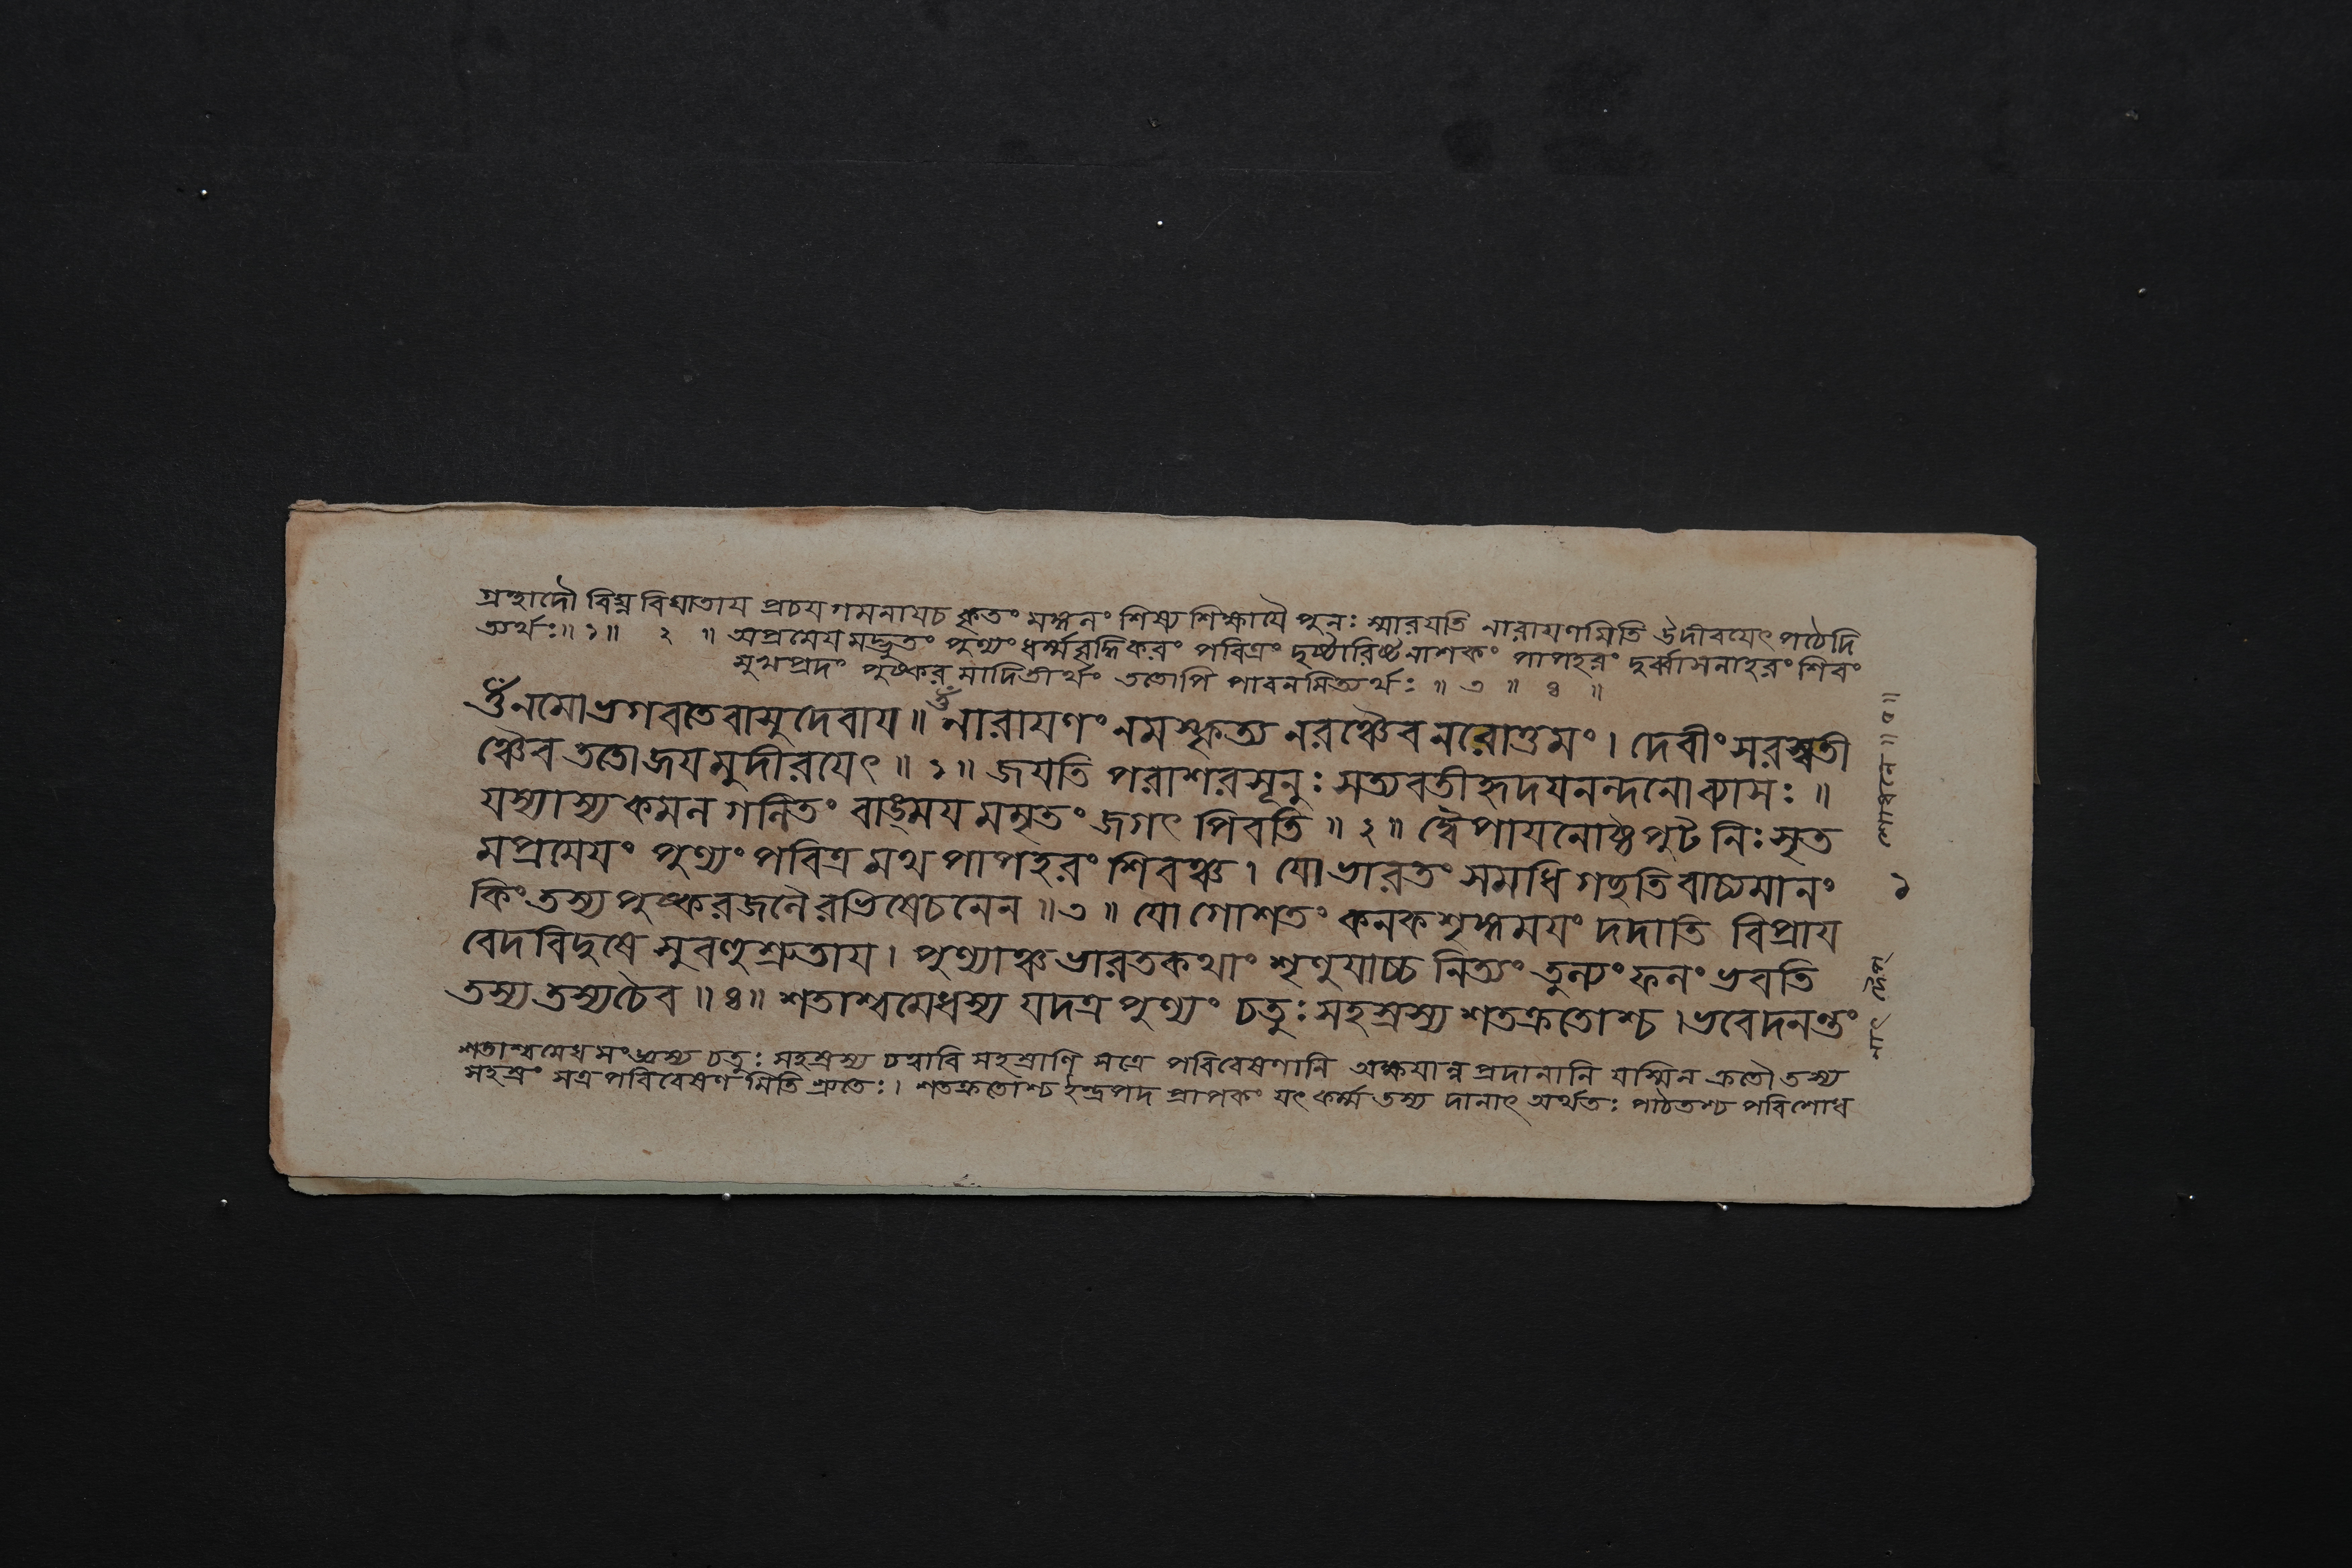 গ্রন্থাদৌ বিঘ্ন বিঘাতায প্রচয গমনাযচ কৃতং মঙ্গলং শিষ্য শিক্ষাযৈ পুনঃ স্মারযতি নারাযণমিতি উদীরযেৎ পঠেদি
ত্যর্থঃ॥ ১॥ ২ ॥ অপ্রমেয মদ্ভুতং পুণ্যং ধর্ম্মবৃদ্ধিকরং পবিত্রং দুষ্টারিষ্ট নাশকং পাপহরং দুর্ব্বাসনাহরং শিবং
সুখপ্রদং পুষ্কর মাদিতীর্থং ততোপি পাবনমিত্যর্থঃ ॥ ৩ ॥ ৪ ॥
ওঁ নমো ভগবতে বাসুদেবায ॥ ওঁ নারাযণং নমস্কৃত্য নরঞ্চৈব নরোত্তমং। দেবীং সরস্বতী
ঞ্চৈব ততো জযমুদীরযেৎ ॥ ১॥ জযতি পরাশরসূনুঃ সত্যবতীহৃদযনন্দনো ব্যাসঃ ॥
যস্যাস্য কমল গলিতং বাঙ্ময মমৃতং জগৎ পিবতি ॥ ২॥ দ্বৈপাযনোষ্ঠপুট নিঃসৃত
মপ্রমেযং পুণ্যং পবিত্র মথ পাপহরং শিবঞ্চ। যো ভারতং সমধি গচ্ছতি বাচ্যমানং
কিং তস্য পুষ্করজলৈরভিষেচনেন ॥৩ ॥ যো গোশতং কনকশৃঙ্গমযং দদাতি বিপ্রায
বেদবিদুষে সুবহুশ্রুতায। পুণ্যাঞ্চ ভারতকথাং শৃণুযাচ্চ নিত্যং তুল্যং ফলং ভবতি
তস্য তস্যচৈব ॥ ৪॥ শতাশ্বমেধস্য যদত্র পুণ্যং চতুঃসহস্রস্য শতক্রতোশ্চ। ভবেদনন্তং
শতাশ্বমেধ সংখ্যস্য চতুঃ সহস্রস্য চত্বারি সহস্রাণি সত্রে পরিবেষণানি অক্ষযান্ন প্রদানানি যস্মিন ক্রতৌ তস্য
সহস্রং সত্র পরিবেষণ মিতি শ্রুতেঃ। শতক্রতোশ্চ ইন্দ্রপদ প্রাপকং যৎ কর্ম্ম তস্য দানাৎ অর্থতঃ পাঠতশ্চ পরিশোধ
১